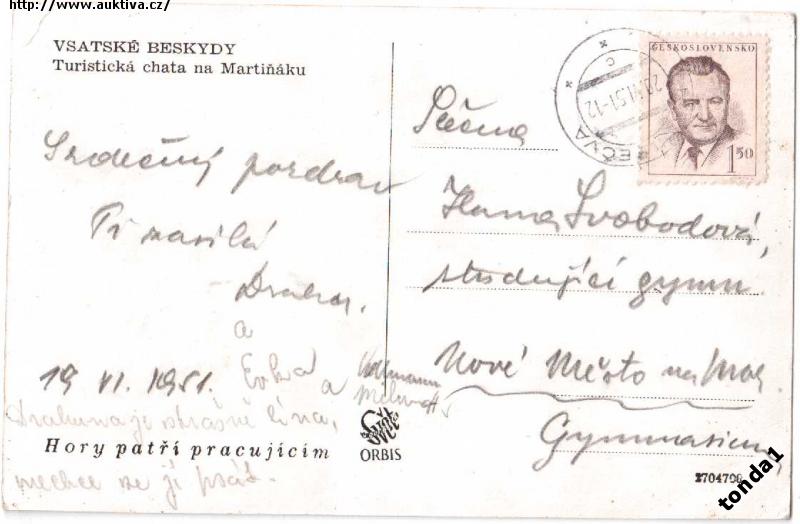 http://www.auktiva.cz/
VSATSKÉ BESKYDY
Turistická chata na Martiňáku
Srdečný pozdrav
Ti zasílá
Drahuš.
a
Evka a
19 VI. 1951.
Drahuna je strašně líná,
nechce se jí psát.
Hory patří pracujícím
Svět
ORBIS
ČESKOSLOVENSKO
1 50
20.VI.51-12
EČVA
Slečna
Hana Svobodová,
studující gymn.
Nové Město na Mor.
Gymnasium
tonda1